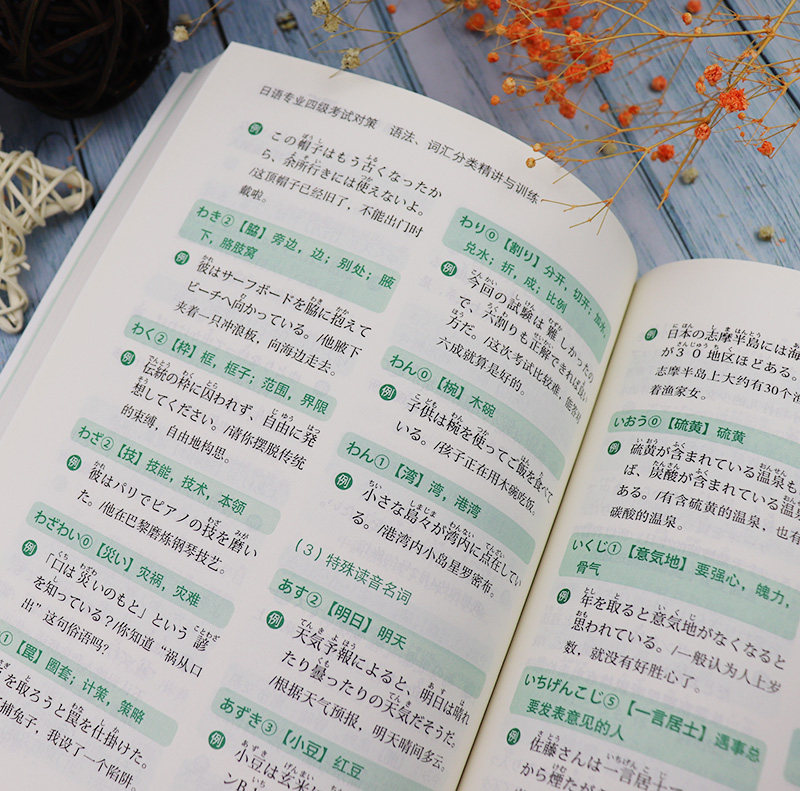 日语专业四级考试对策 语法、词汇分类精讲与训练
例 この帽子はもう古くなったか
ら、余所行きには使えないよ。
/这顶帽子已经旧了，不能出门时
戴啦。
わき②【脇】旁边，边；别处；腋
下，胳肢窝
例 彼はサーフボードを脇に抱えて
ビーチへ向かっている。/他腋下
夹着一只冲浪板，向海边走去。
わく②【枠】框，框子；范围，界限
例 伝統の枠に囚われず、自由に発
想してください。/请你摆脱传统
的束缚，自由地构思。
わざ②【技】技能，技术，本领
例 彼はパリでピアノの技を磨い
た。/他在巴黎磨炼钢琴技艺。
わざわい⓪【災い】灾祸，灾难
例 「口は災いのもと」という諺
を知っている？/你知道“祸从口
出”这句俗语吗？
①【罠】圈套；计策，策略
を取ろうと罠を仕掛けた。
捕兔子，我设了一个陷阱。
わり⓪【割り】分开，切开；加水，
兑水；折，成；比例
例 今回の試験は難しかったの
で、六割りも正解できれば良い
方だ。/这次考试比较难，能答对
六成就算是好的。
わん⓪【椀】木碗
例 子供は椀を使ってご飯を食べて
いる。/孩子正在用木碗吃饭。
わん①【湾】湾，港湾
例 小さな島々が湾内に点在してい
る。/港湾内小岛星罗密布。
（3）特殊读音名词
あす②【明日】明天
例 天気予報によると、明日は晴れ
たり曇ったりの天気だそうだ。
/根据天气预报，明天晴间多云。
あずき③【小豆】红豆
例 小豆は玄米
ンB
例 日本の志摩半島には海
が３０地区ほどある。
志摩半岛上大约有30个渔
着渔家女。
いおう⓪【硫黄】硫黄
例 硫黄が含まれている温泉も
ば、炭酸が含まれている温泉
ある。/有含硫黄的温泉，也有
碳酸的温泉。
いくじ①【意気地】要强心，魄力，
骨气
例 年を取ると意気地がなくなると
思われている。/一般认为人上岁
数，就没有好胜心了。
いちげんこじ⑤【一言居士】遇事总
要发表意见的人
例 佐藤さんは一言居士
から煙たが